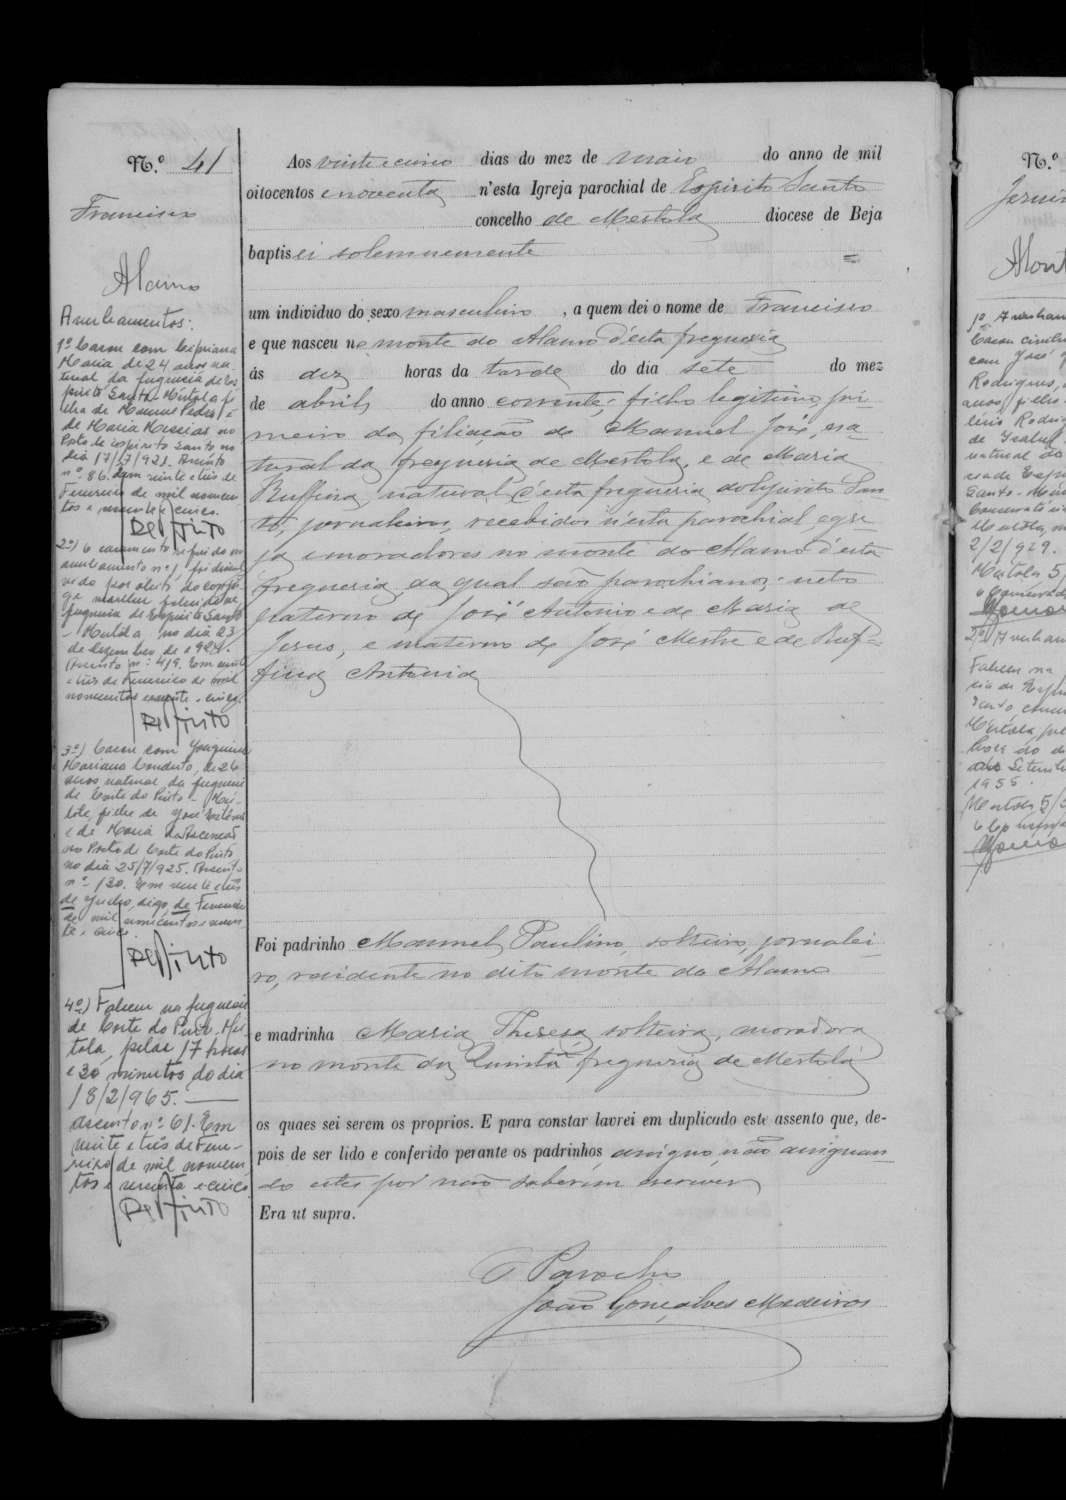 N.º 41
Francisco
Alamo
Averbamentos:
1º Casou com Cipriana
Maria de 24 anos na-
tural da freguesia de Es
pirito Santo - Mértola fi
lha de Manuel Pedro e
de Maria Messias no
Posto de Espirito Santo no
dia 17/7/921. Assento
nº 86. Em vinte e três de
Fevereiro de mil novecen
tos e sessenta e cinco.
2º) O casamento referido no
averbamento nº 1, foi dissol
vido por obito do conju-
ge mulher, falecida na
freguesia de Espirito Santo
- Mértola, no dia 23
de Dezembro de 1924.
Assento nº 419. Em vinte
e três de Fevereiro de mil
novecentos sessenta e cinco.
3º) Casou com Joaquina
Mariana Conduto, de 26
anos natural da freguesia
de Corte do Pinto - Mér-
tola, filha de José
e de Maria da Ascenção
no Posto de Corte do Pinto
no dia 25/7/925. Assento
nº 130. Em vinte e três
de Julho, digo, de Fevereiro
de mil novecentos e sessen
ta e cinco.
4º) Faleceu na freguesia
de Corte do Pinto - Mér-
tola, pelas 17 horas
e 30 minutos do dia
18/2/965. —
Assento nº 61. Em
vinte e três de Feve-
reiro de mil novecen
tos e sessenta e cinco.
Aos vinte e cinco dias do mez de maio do anno de mil
oitocentos e noventa n'esta Igreja parochial de Espirito Santo
concelho de Mertola diocese de Beja
baptisei solemnemente =
um individuo do sexo masculino, a quem dei o nome de Francisco
e que nasceu no monte do Alamo d'esta freguesia
ás dez horas da tarde do dia sete do mez
de abril do anno corrente; filho legitimo, pri-
meiro da filiação de Manuel José, na-
tural da freguesia de Mertola, e de Maria
Ruffina, natural d'esta freguesia do Espirito San-
to, jornaleiros, recebidos n'esta parochial egre
ja e moradores no monte do Alamo d'esta
freguesia, da qual são parochianos; neto
paterno de José Antonio e de Maria de
Jesus, e materno de José Mestre e de Ruf-
fina Antonia
Foi padrinho Manuel Paulino, solteiro, jornalei-
ro, residente no dito monte do Alamo
e madrinha Maria Thereza, solteira, moradora
no monte da Quinta freguesia de Mertola
os quaes sei serem os proprios. E para constar lavrei em duplicado este assento que, de-
pois de ser lido e conferido perante os padrinhos, assigno, não assignan-
do estes por não saberem escrever
Era ut supra.
O Parocho
João Gonçalves Medeiros
N.º
1º Averbam
Casou civilm
com José
Rodrigues,
anos filho
de Isabel
natural do
2/2/929.
Mértola 5/
2º Averbam
Faleceu na
Santo, concel
Mértola, pe
Setemb
1955.
Mértola 5/